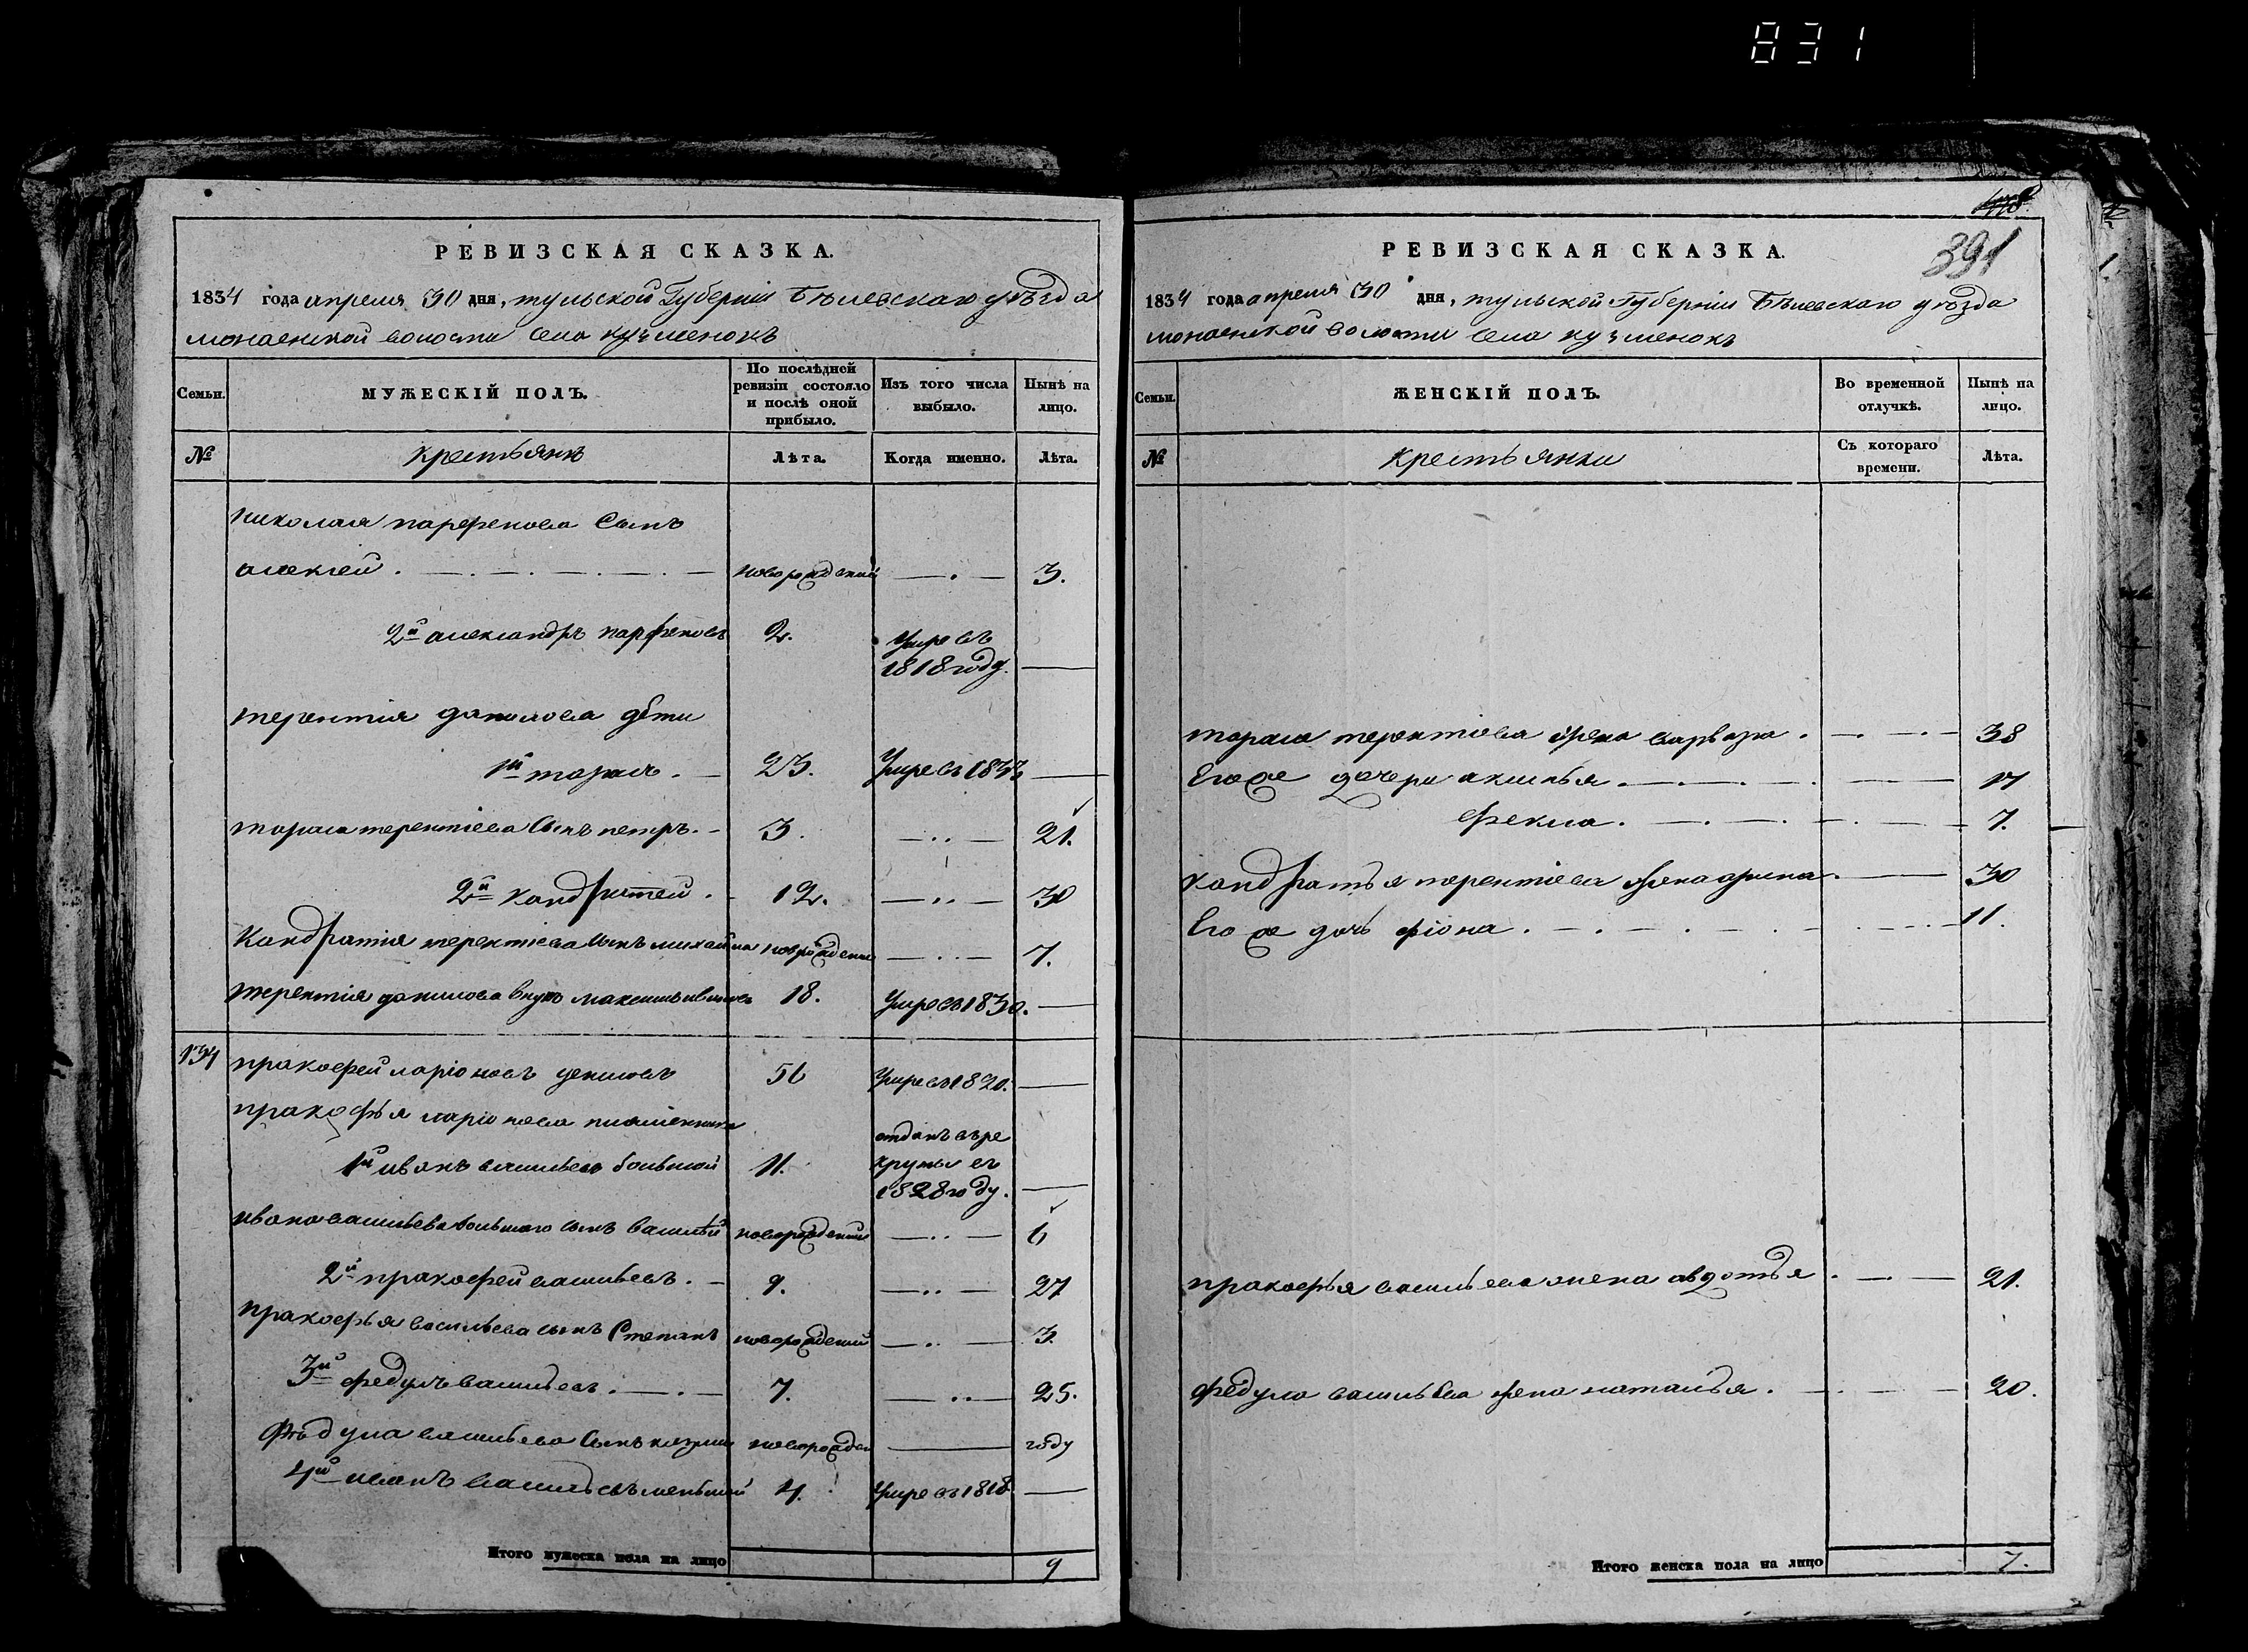 831
РЕВИЗСКАЯ СКАЗКА.
1834 года апреля 30 дня, тульской Губернiи Бѣлевскаго уѣзда
монаенской волости села кузменокъ
Семьи.
МУЖЕСКІЙ ПОЛЪ.
По послѣдней ревизіи состояло и послѣ оной прибыло.
Изъ того числа выбыло.
Нынѣ на лицо.
№
крестьянъ
Лѣта.
Когда именно.
Лѣта.
николая парфенова сынъ
алексей новорожденный 3.
2й александръ парфеновъ 2. умре въ
1818 году.
терентiя данилова дѣти
1й тарасъ. 23. умре въ 183
тараса терентiева сынъ петръ. 3. 21.
2й кандратей. 12. 30
Кандратiя терентiева сынъ михайла новорожденные 7.
терентiя данилова внукъ максимъ 18. умре въ 1830.
134 пракофей ларiоновъ 56 умре въ 1820.
пракофья ларiонова племянники
1й иванъ васильевъ большой 11. отданъ въ ре
круты въ
1828 году.
ивана васильева большаго сынъ василѣй новорожденный 6
2й пракофей васильевъ. 9. 27
пракофья васильева сынъ Степанъ новорожденный 3.
3й федулъ васильевъ. 7. 25.
Федула васильева сынъ новорожден году
4й иванъ васильевъ меньшой 4. умре въ 1818
Итого мужеска пола на лицо 9
391
РЕВИЗСКАЯ СКАЗКА.
1834 года апреля 30 дня, тульской Губернiи Бѣлевскаго уѣзда
монаенской волости села кузменокъ
Семьи.
ЖЕНСКІЙ ПОЛЪ.
Во временной отлучкѣ.
Нынѣ на лицо.
№
крестьянки
Съ котораго времени.
Лѣта.
тараса терентiева жена варвара. 38
Его же дочери аксинья 17
Фекла. 7.
кандратья терентiева жена арина 30
Его же дочь фiона. 11.
пракофья васильева жена авдотья. 21.
федула васильева жена наталья. 20.
Итого женска пола на лицо 7.